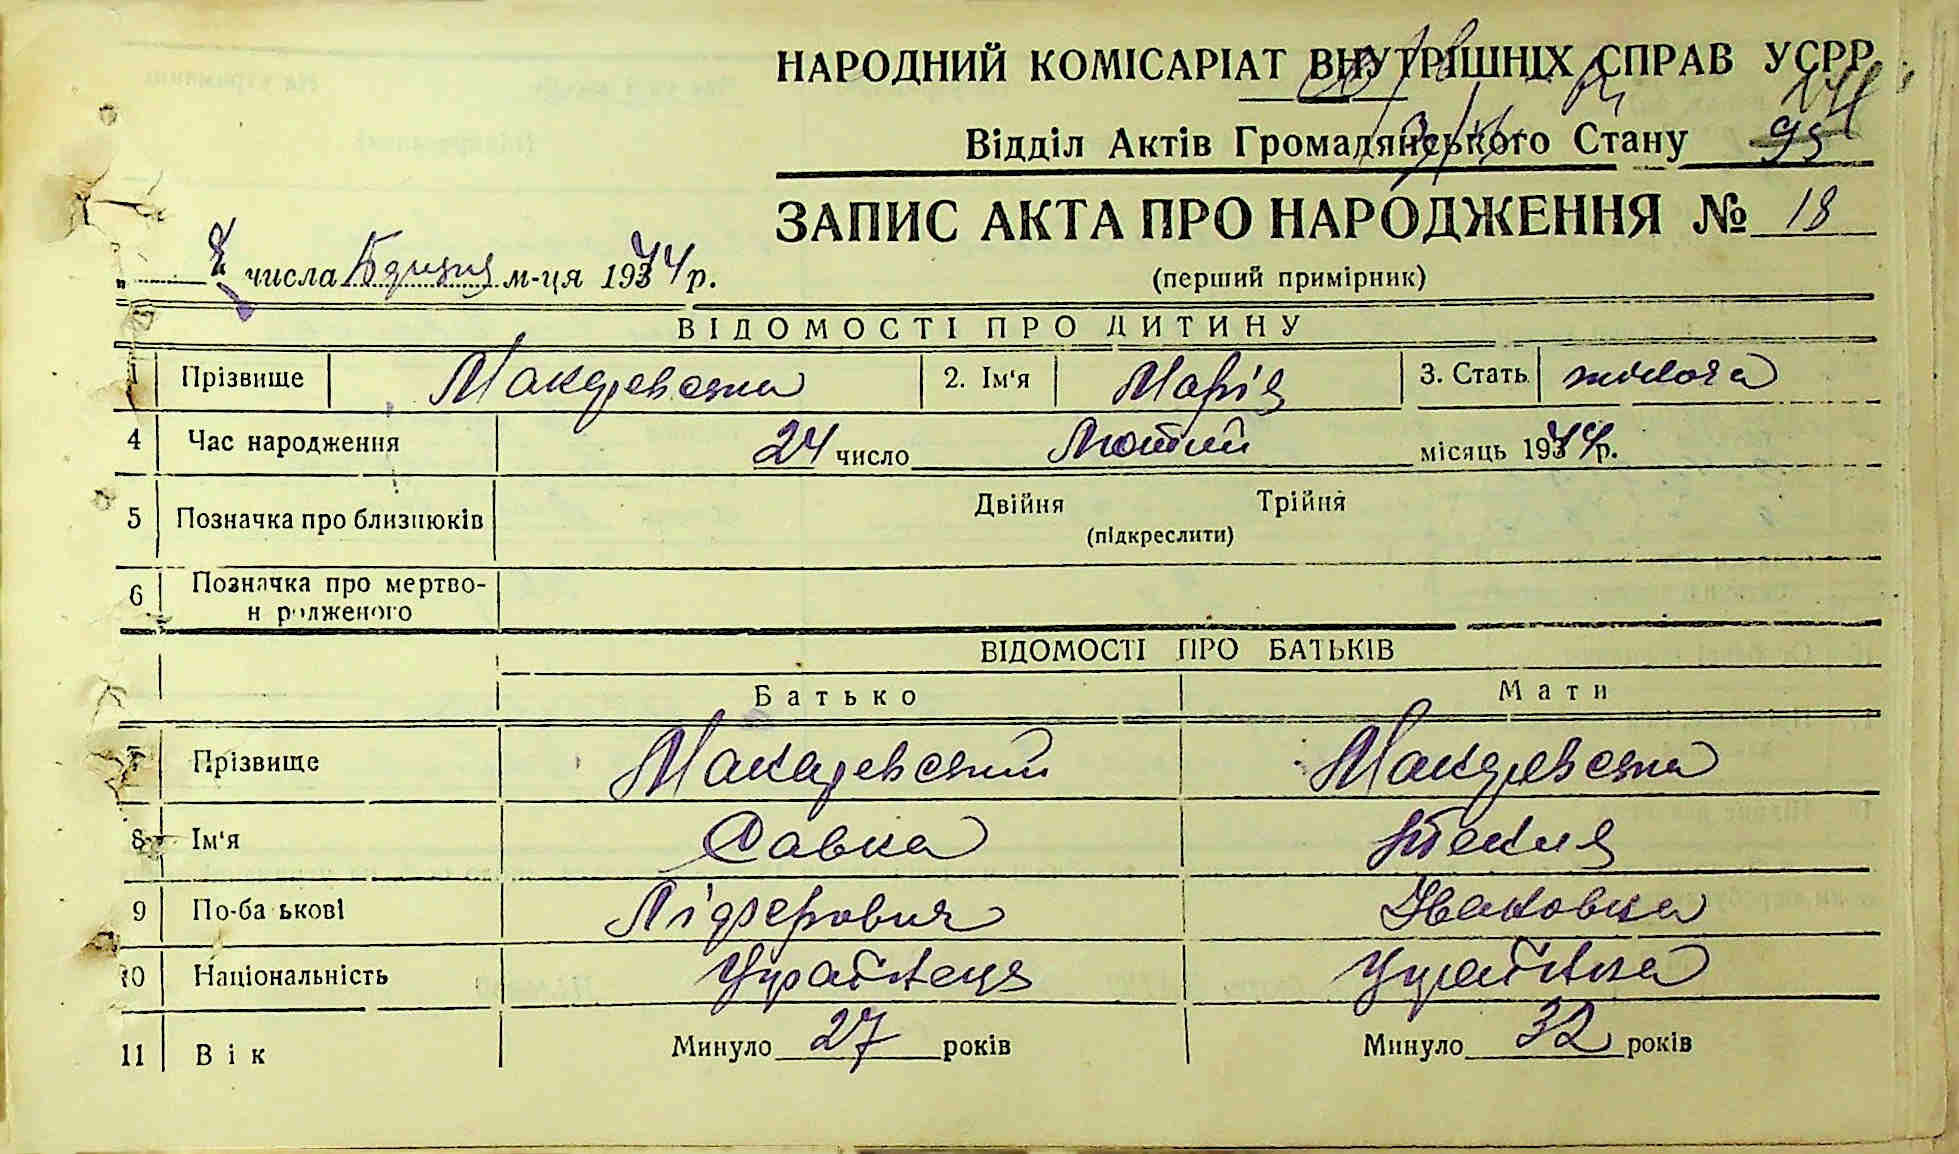 НАРОДНИЙ КОМІСАРІАТ ВНУТРІШНІХ СПРАВ УСРР
Відділ Актів Громадянського Стану 95
ЗАПИС АКТА ПРО НАРОДЖЕННЯ № 18
числа м-ця 1944 р.
(перший примірник)
ВІДОМОСТІ ПРО ДИТИНУ
1 Прізвище 2. Ім'я Марія 3. Стать жіноча
4 Час народження 24 число Лютий місяць 1944 р.
5 Позначка про близнюків Двійня Трійня
(підкреслити)
6 Позначка про мертво-
н родженого
ВІДОМОСТІ ПРО БАТЬКІВ
Батько Мати
7 Прізвище
8 Ім'я Савка Текля
9 По-ба ькові Івановна
10 Національність Українець Українка
11 Вік Минуло 27 років Минуло 32 років